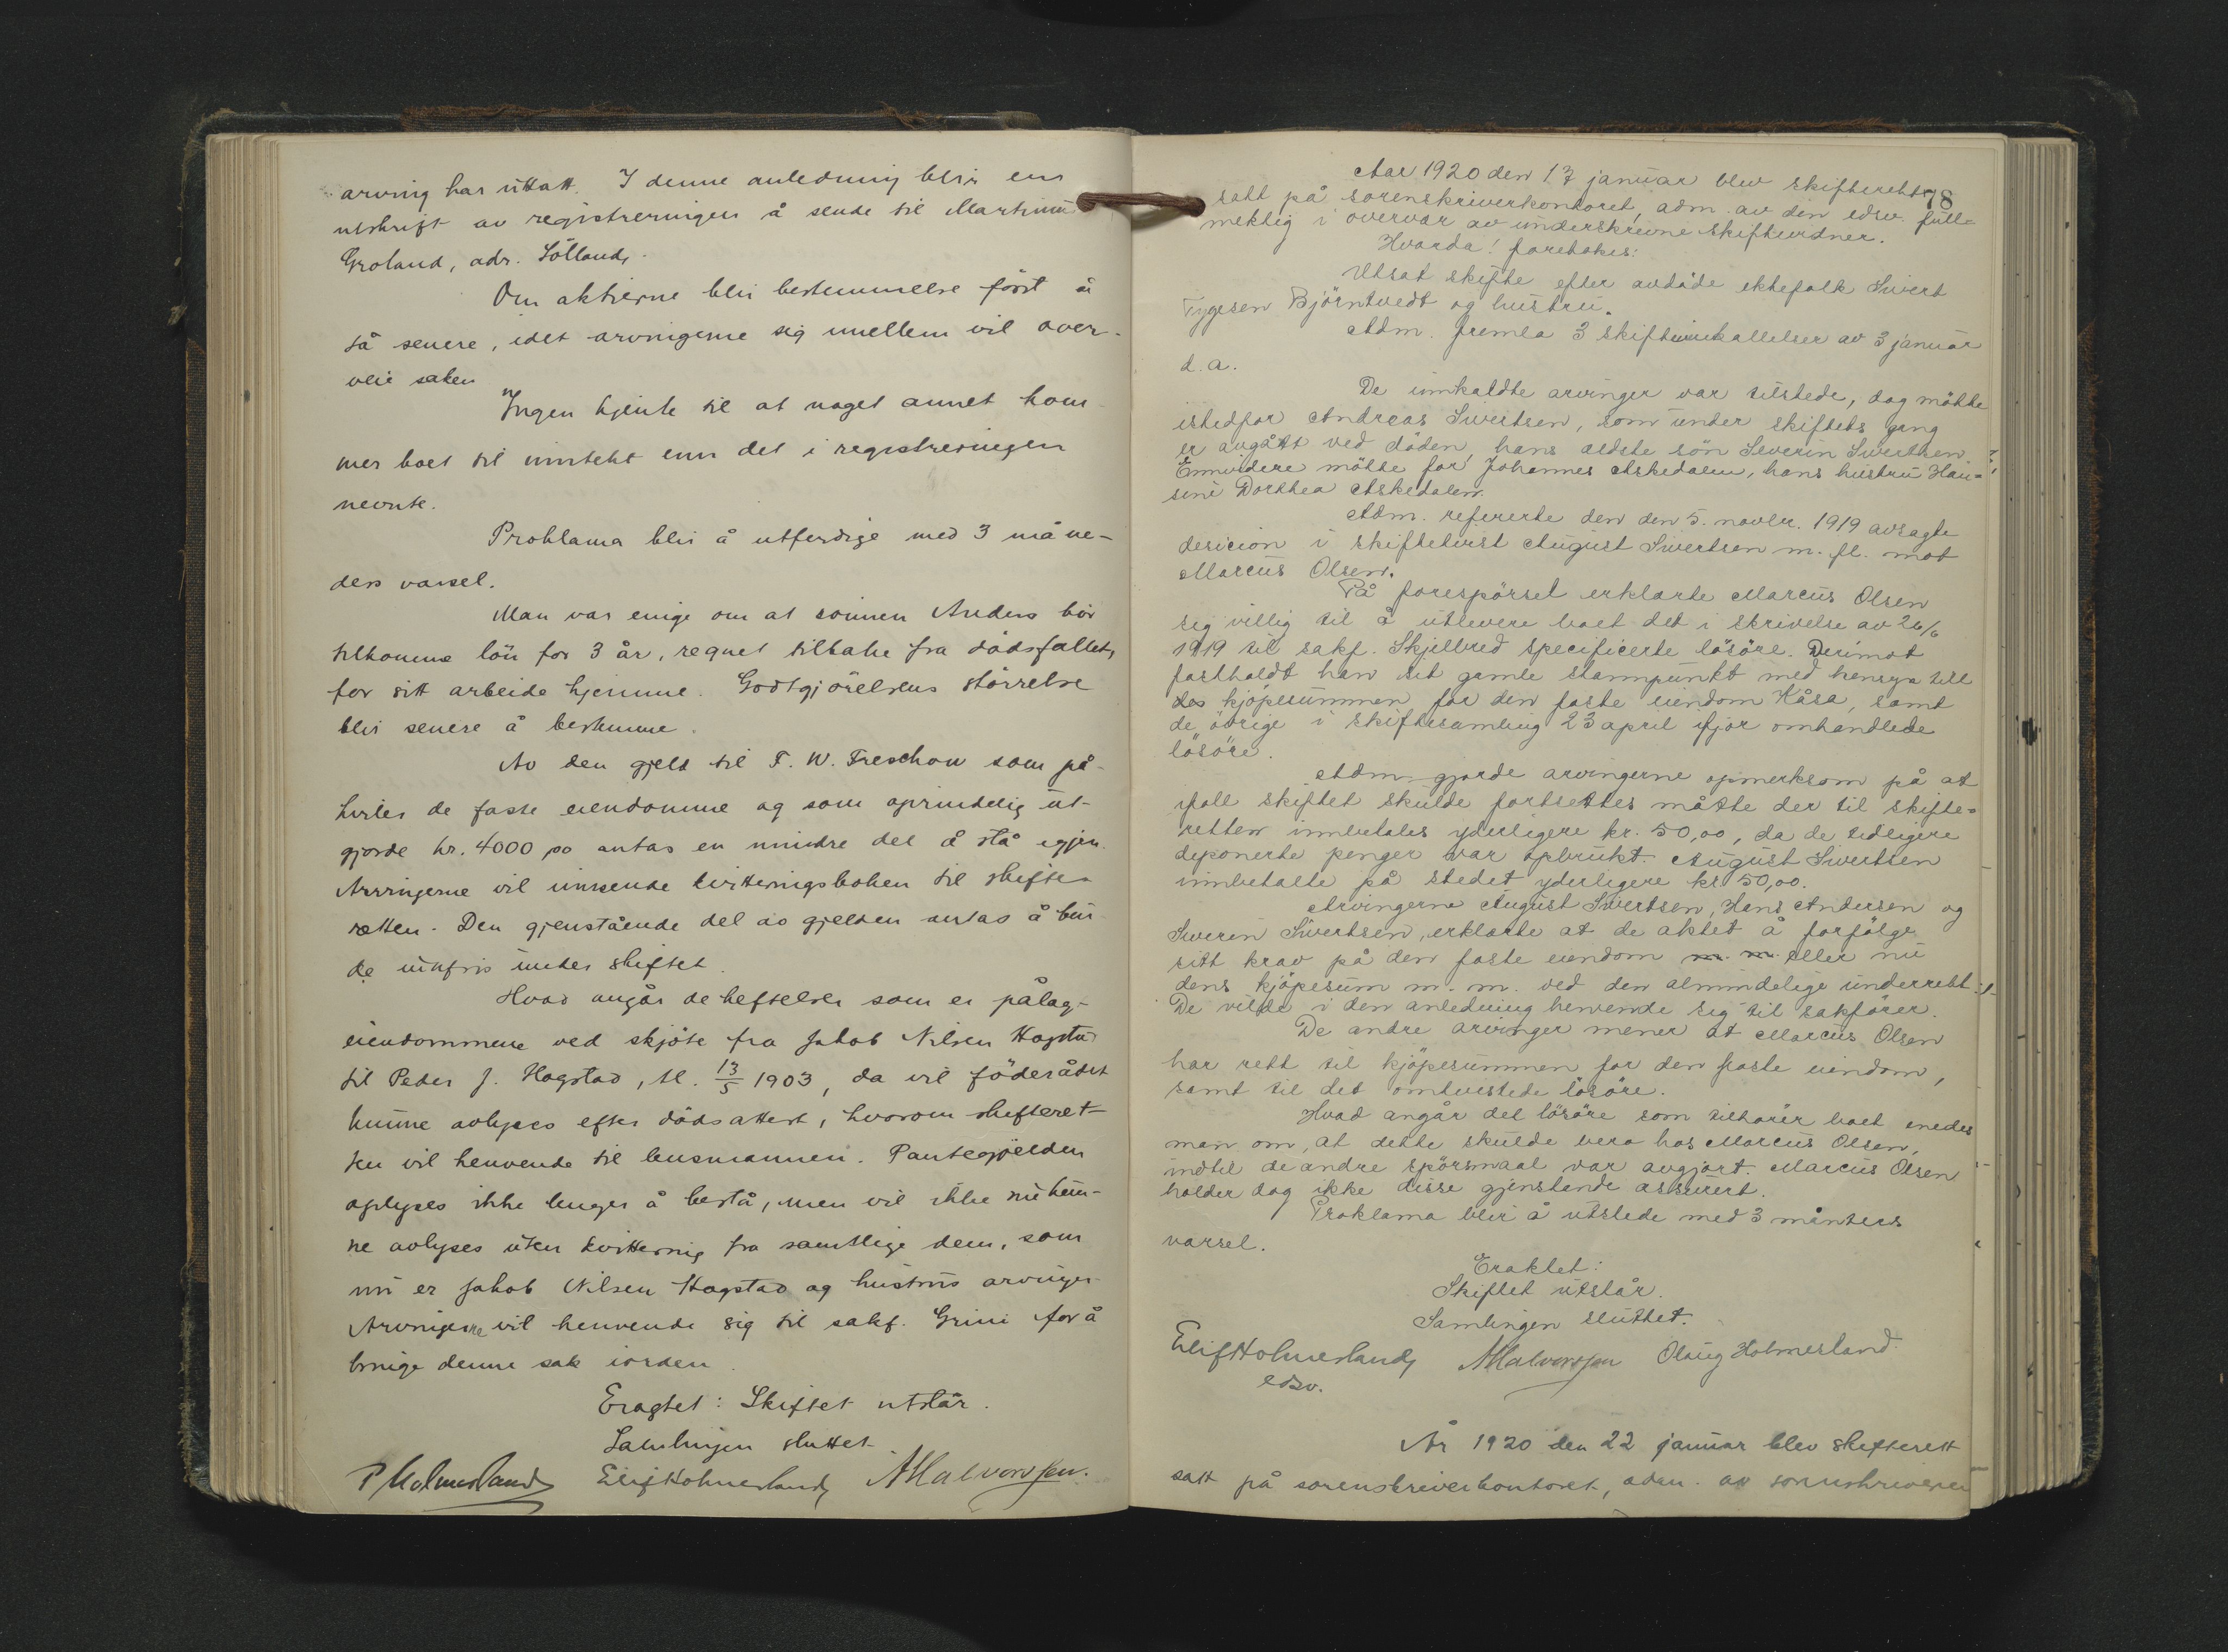 arving har uttatt. I denne anledning blir en
utskrift av registreringen å sende til Martinius
Groland, adr. Sölland.
Om aktierne blir bestemmelse först å
ta senere, idet arvingerne sig imellem vil over-
veie saken
Ingen kjente til at noget annet kom-
mer boet til inntekt enn det i registreringen
nevnte.
Proklama blir å utferdige med 3 måne-
ders varsel.
Man var enige om at sönnen Anders bör
tilkomme lön for 3 år, regnet tilbake fra dödsfallet,
for sitt arbeide hjemme. Godtgjörelsens störrelse
blir senere å bestemme.
Av den gjeld til F. W. Treschow som på-
hviler de faste eiendomme og som oprindelig ut-
gjorde kr. 4000,00 antas en mindre del å stå igjen.
Arvingerne vil innsende kvitteringsboken til skifte-
retten. Den gjenstående del av gjelden antas å bur-
de innfris under skiftet.
Hvad angår de heftelser som er pålagt
eiendommene ved skjöte fra Jakob Nilsen Hogstad
til Peder J. Hogstad, tl. 13/5 1903, da vil föderådet
kunne avlyses efter dödsattest, hvorom skifteret-
ten vil henvende til lensmannen. Pantegjelden
oplyses ikke lenger å bestå, men vil ikke nu kun-
ne avlyses uten kvittering fra samtlige dem, som
nu er Jakob Nilsen Hogstad og hustrus arvinger.
Arvingerne vil henvende sig til sakf. Grini for å
bringe denne sak iorden.
Eragtet: Skiftet utstår.
Samlingen sluttet.
P Holmesland Elif Holmesland AHalvorsen.
78
Aar 1920 den 17 januar blev skifterett
satt på sorenskriverkontoret, adm. av den edsv. full-
mektig i overvær av underskrevne skiftevidner.
Hvorda! foretokes:
Utsat skifte efter avdöde ektefolk Sivert
Tygesen Björntvedt og hustru.
Adm. fremla 3 skifteinnkallelser av 3 januar
d. a.
De innkaldte arvinger var tilstede, dog mötte
istedfor Andreas Sivertsen, som under skiftets gang
er avgått ved döden, hans eldste sön Severin Sivertsen.
Ennvidere mötte for Johannes Askedalen, hans hustru Han-
sine Dorthea Askedalen.
Adm. refererte den den 5. novbr. 1919 avsagte
desicion i skiftetvist August Sivertsen m. fl. mot
Marcus Olsen.
På forespörsel erklærte Marcus Olsen
sig villig til å utlevere boet det i skrivelse av 26/6
1919 til sakf. Skjelbred specificerte lösöre. Derimot
fastholdt han sit gamle stampunkt med hensyn till
des kjöpesummen for den faste eiendom Kåsa, samt
de övrige i skiftesamling 23 april ifjor omhandlede
lösöre.
Adm. gjorde arvingerne opmerksom på at
ifall skiftet skulde fortsettes måtte der til skifte-
retten innbetales yderligere kr. 50,00, da de tidligere
deponerte penger var opbrukt. August Sivertsen
innbetalte på stedet yderligere kr 50,00.
Arvingerne August Sivertsen, Hans Andersen og
Severin Sivertsen, erklærte at de aktet å forfölge
sitt krav på den faste eiendom m. m. eller nu
dens kjöpesum m. m. ved den almindelige underrett.
De vilde i den anledning henvende sig til sakförer.
De andre arvinger mener at Marcus Olsen
har rett til kjöpesummen for den faste eiendom,
samt til det omtvistede lösöre.
Hvad angår det lösöre som tilhörer boet enedes
man om, at dette skulde vera hos Marcus Olsen,
indtil de andre spörsmaal var avgjort. Marcus Olsen
holder dog ikke disse gjenstande assurert.
Proklama blir å utstede med 3 månders
varsel.
Eraktet:
Skiftet utstår.
Samlingen sluttet.
Elif Holmesland AHalvorsen Olaug Holmesland.
edsv.
År 1920 den 22 januar blev skifterett
satt på sorenskriverkontoret, adm. av sorenskriveren